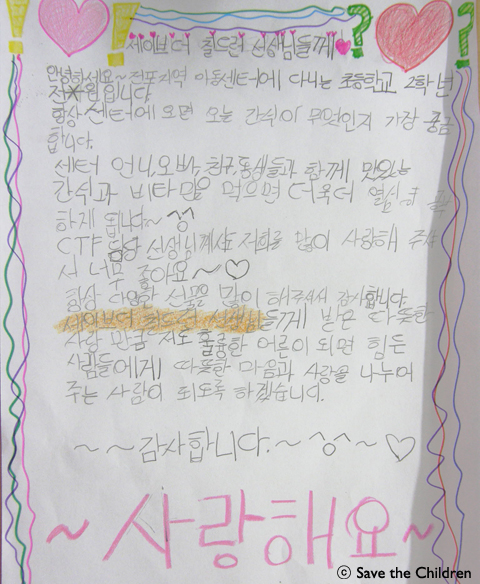 세이브더 칠드런 선생님들께
안녕하세요~ 전포지역 아동센터에 다니는 초등학교 2학년
입니다.
항상 센터에 오면 오늘 간식이 무엇인지 가장 궁금
합니다.
센터 언니,오빠,친구,동생들과 함께 맛있는
간식과 비타민을 먹으면 더욱더 열심히
하게 됩니다~ ^o^
CTF 담당 선생님께서도 저희를 많이 사랑해 주셔
서 너무 좋아요~♡
항상 다양한 선물을 많이 해주셔서 감사합니다.
세이브더 칠드런 선생님들께 받은 따뜻한
사랑 만큼 저도 훌륭한 어른이 되면 힘든
사람들에게 따뜻한 마음과 사랑을 나누어
주는 사람이 되도록 하겠습니다.
~~감사합니다.~^o^~♡
~사랑해요~
© Save the Children